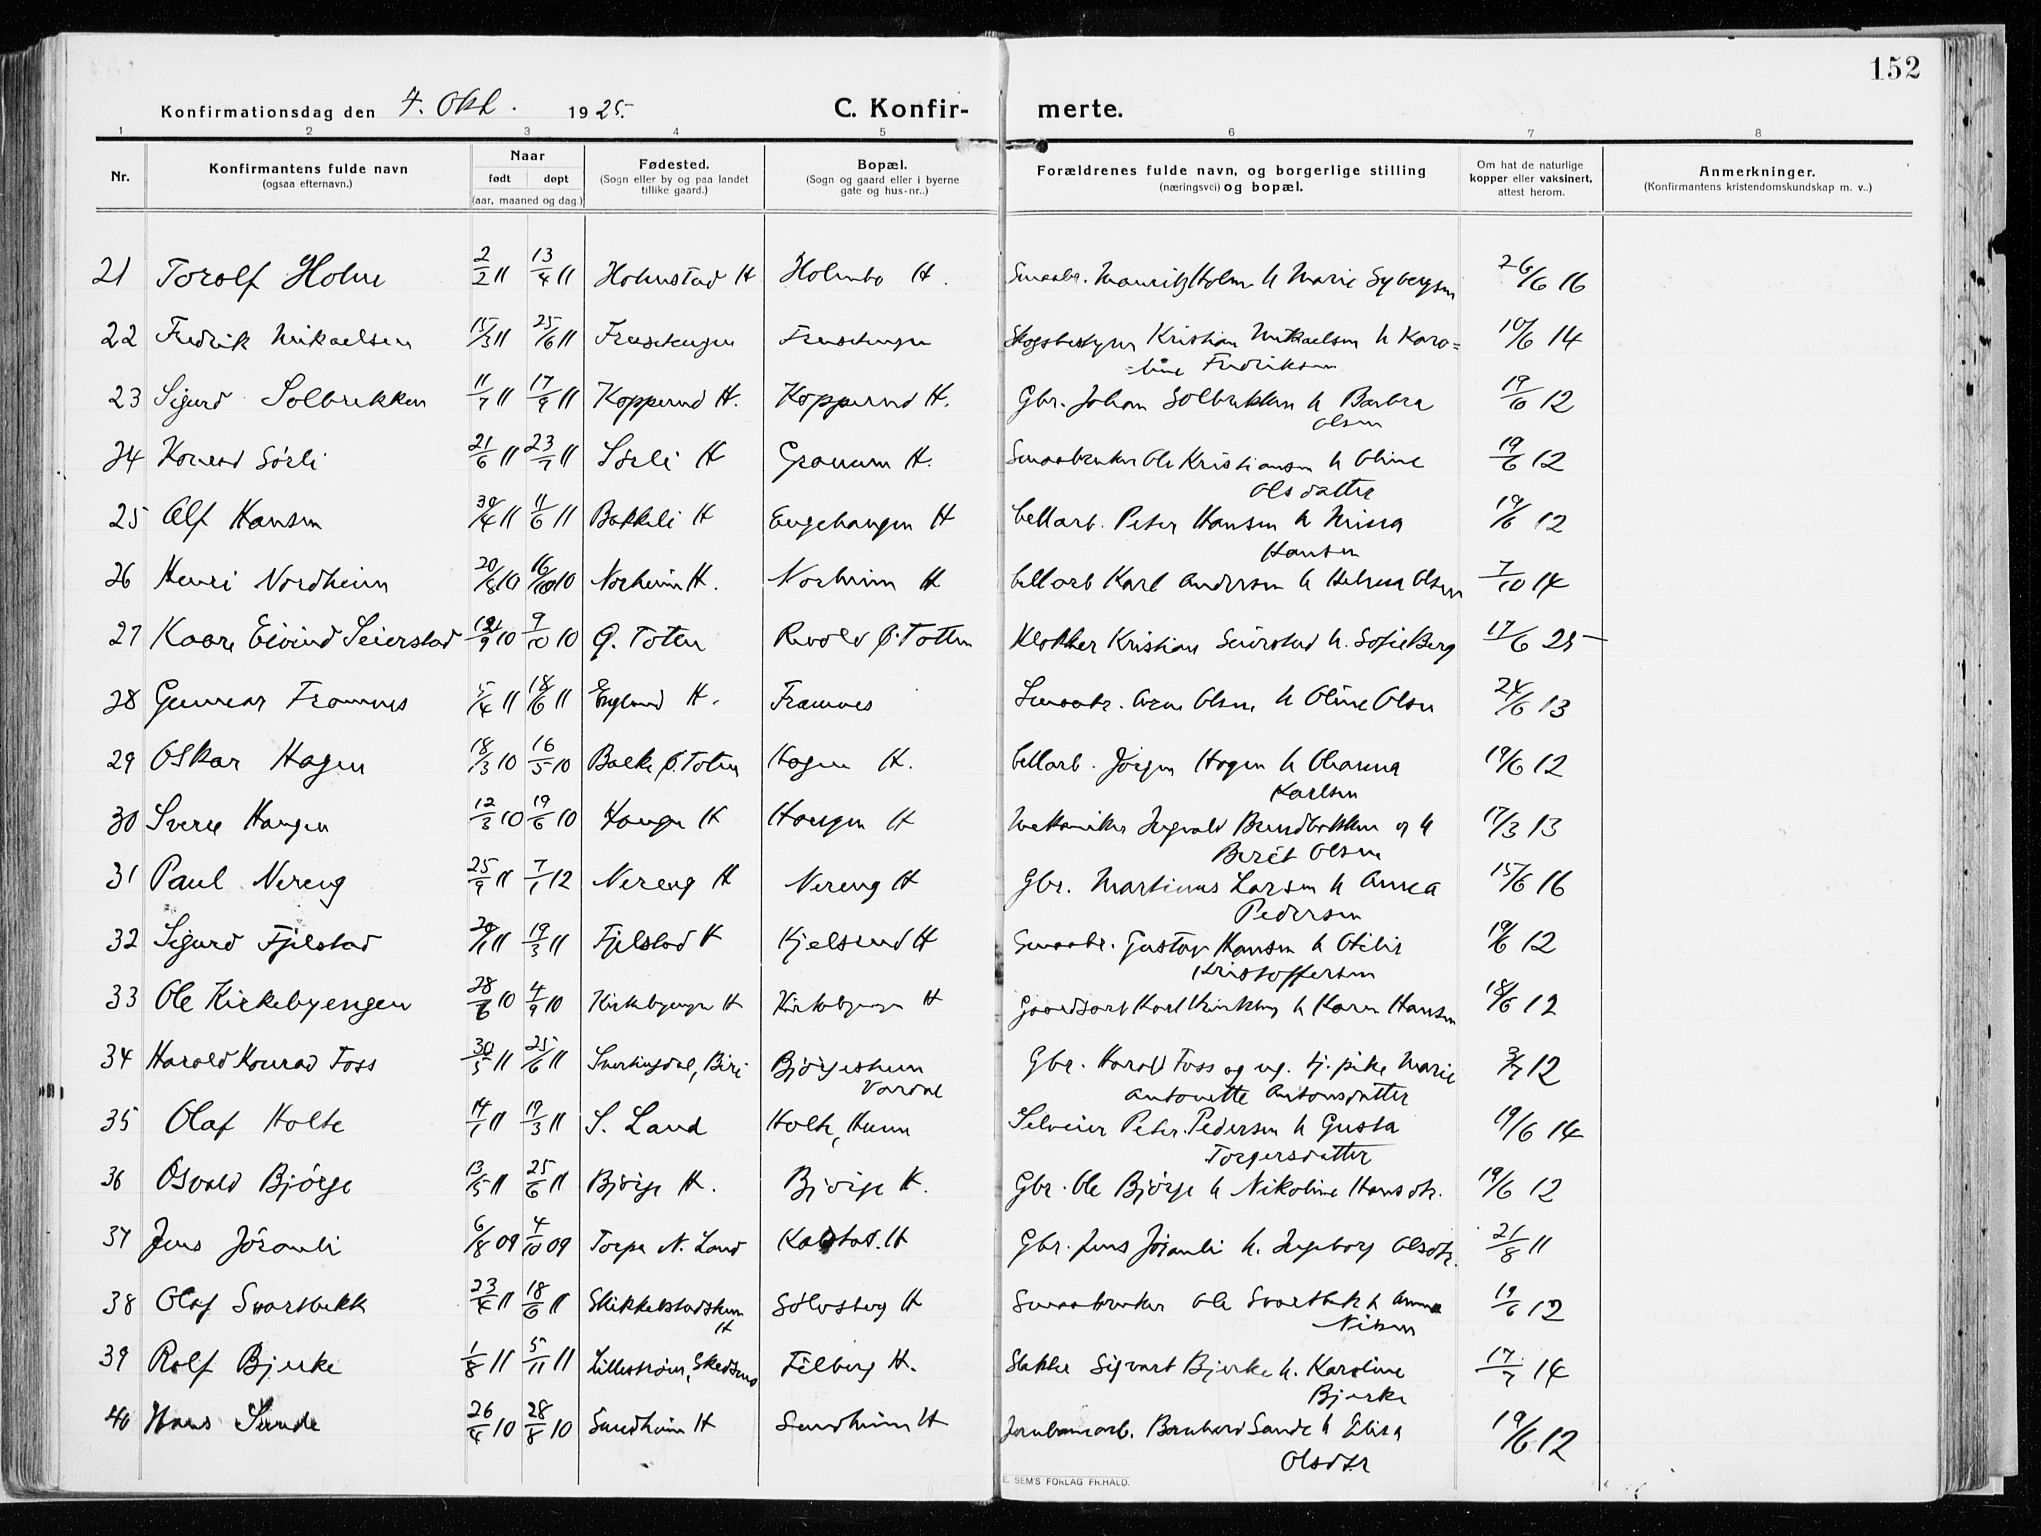 152
Konfirmationsdag den 4. Okt. 1925.
C. Konfirmerte.
1 2 3 4 5 6 7 8
Nr.
Konfirmantens fulde navn
(ogsaa efternavn.)
Naar
født døpt
(aar, maaned og dag.)
Fødested.
(Sogn eller by og paa landet
tillike gaard.)
Bopæl.
(Sogn og gaard eller i byerne
gate og hus-nr..)
Forældrenes fulde navn, og borgerlige stilling
(næringsvei) og bopæl.
Om hat de naturlige
kopper eller vaksinert,
attest herom.
Anmerkninger.
(Konfirmantens kristendomskundskap m. v..)
21 Torolf Holm 2/2 11 13/4 11 Holmstad H Holmbo H. Smaabr. Mauritz Holm h Marie Sybergsen 26/6 16
22 Fredrik Mikaelsen 15/3 11 25/6 11 Skogbestyrer Kristian Mikaelsen h Karo=
line Fredriksen 10/6 14
23 Sigurd Solbrekken 11/7 11 17/9 11 Kopperud H. Kopperud H. Gbr. Johan Solbrekken h Barbra
Olsen 19/6 12
24 Konrad Sörli 21/6 11 23/7 11 Sörli H Granum H. Smaabruker Ole Kristiansen h Oline
Olsdatter 19/6 12
25 Alf Hansen 30/4 11 11/6 11 Bakkeli H Engehaugen H Cellarb. Peter Hansen h Minna
Hansen 19/6 12
26 Henri Nordheim 20/8 10 16/10 10 Norheim H. Norheim H Cellarb Karl Andersen h Helma Olsen 7/10 14
27 Kaare Eivind Seierstad 9/10 10 Ø. Toten Revold Ø. Toten Klokker Kristian Seierstad h. Sofie Berg 17/6 25
28 Gunnar Framnes 5/4 11 18/6 11 Englund H. Framnes Smaabr. Arne Olsen h Oline Olsen 24/6 13
29 Oskar Hagen 18/3 10 16/5 10 Balke Ø. Toten Hagen H. Cellarb. Jörgen Hagen h Olianna
Karlsen 19/6 12
30 Sverre Haugen 12/3 10 19/6 10 Haugen H Haugen H Mekaniker Ingvald Bundbakken og h
Berét Olsen 17/3 13
31 Paul Nereng 25/9 11 7/1 12 Nereng H Nereng H Gbr. Martinus Larsen h Anna
Pedersen 15/6 16
32 Sigurd Fjelstad 29/1 11 19/3 11 Fjelstad H Kjelsrud H Smaabr. Gustav Hansen h Otilie
Kristoffersen 19/6 12
33 Ole Kirkebyengen 28/6 10 4/9 10 Kirkebyengen H Kirkebyengen H Gaardsarb Karl h Karen Hansen 18/6 12
34 Harald Konrad Foss 30/5 11 25/6 11 Snertingdal, Biri Björgeshum
Vardal Gbr. Harald Foss og ug. tj. pike Marie
Antonette Antonsdatter 12
35 Olaf Holte 14/1 11 19/3 11 S. Land Holte, Hunn Selveier Peter Pedersen h Gusta
Torgersdatter 19/6 14
36 Osvald Björge 13/5 11 25/6 11 Björge H. Björge H. Gbr. Ole Björge h Nikoline Hansdtr. 19/6 12
37 Jens Jöranli 6/8 09 4/10 09 Torpa N. Land Kalstad. H Gbr. Jens Jöranli h. Ingeborg Olsdtr. 21/8 11
38 Olaf Svartbekk 23/4 11 18/6 11 Skikkelstadshum
H Sölvsberg H Smaabruker Ole Svartbekk h Anna
Nilsen 19/6 12
39 Rolf Bjerke 1/8 11 5/11 11 Lilleström, Skedsmo Filberg H. Slakter Sigvart Bjerke h. Karoline
Bjerke 17/7 14
40 Hans Sunde 26/4 10 28/8 10 Sundheim H Sundheim H Jernbanearb. Bernhard Sunde h Elisa
Olsdtr 19/6 12
E. SEM'S FORLAG FR.HALD.